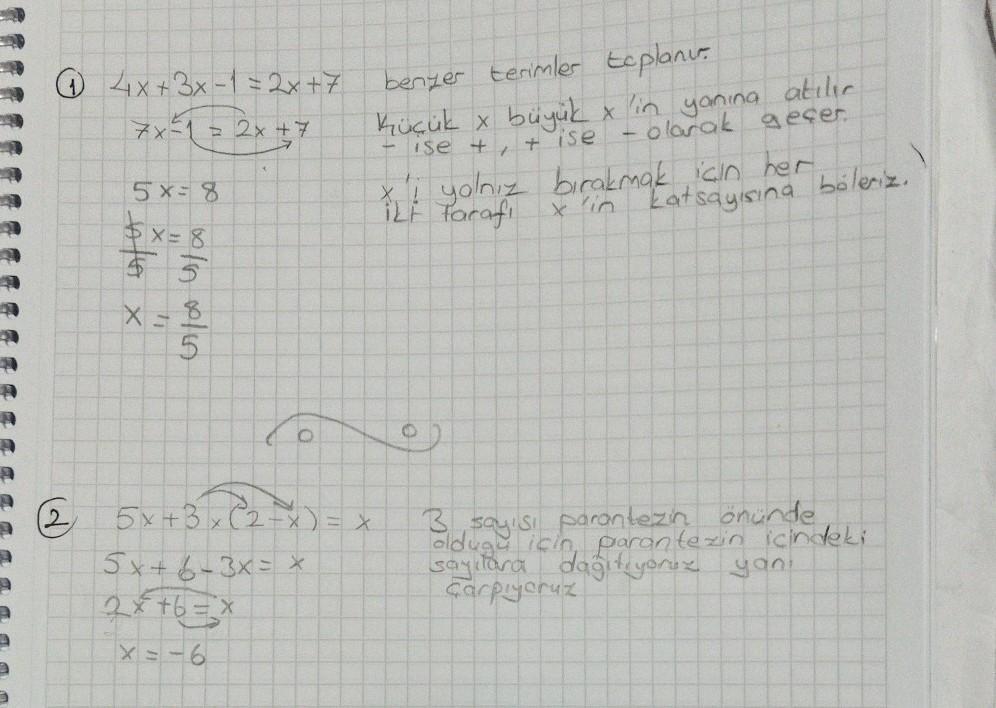 ① 4x+3x-1=2x+7 benzer terimler toplanır.
7x-1=2x+7 Küçük x büyük x'in yanına atılır
- ise +, + ise - olarak geçer.
5x=8 x'i yalnız bırakmak için her
iki tarafı x'in katsayısına böleriz.
5x/5=8/5
x=8/5
② 5x+3x(2-x)=x 3 sayısı parantezin önünde
olduğu için parantezin içindeki
5x+6-3x=x sayılara dağıtıyoruz yani
çarpıyoruz
2x+6=x
x=-6